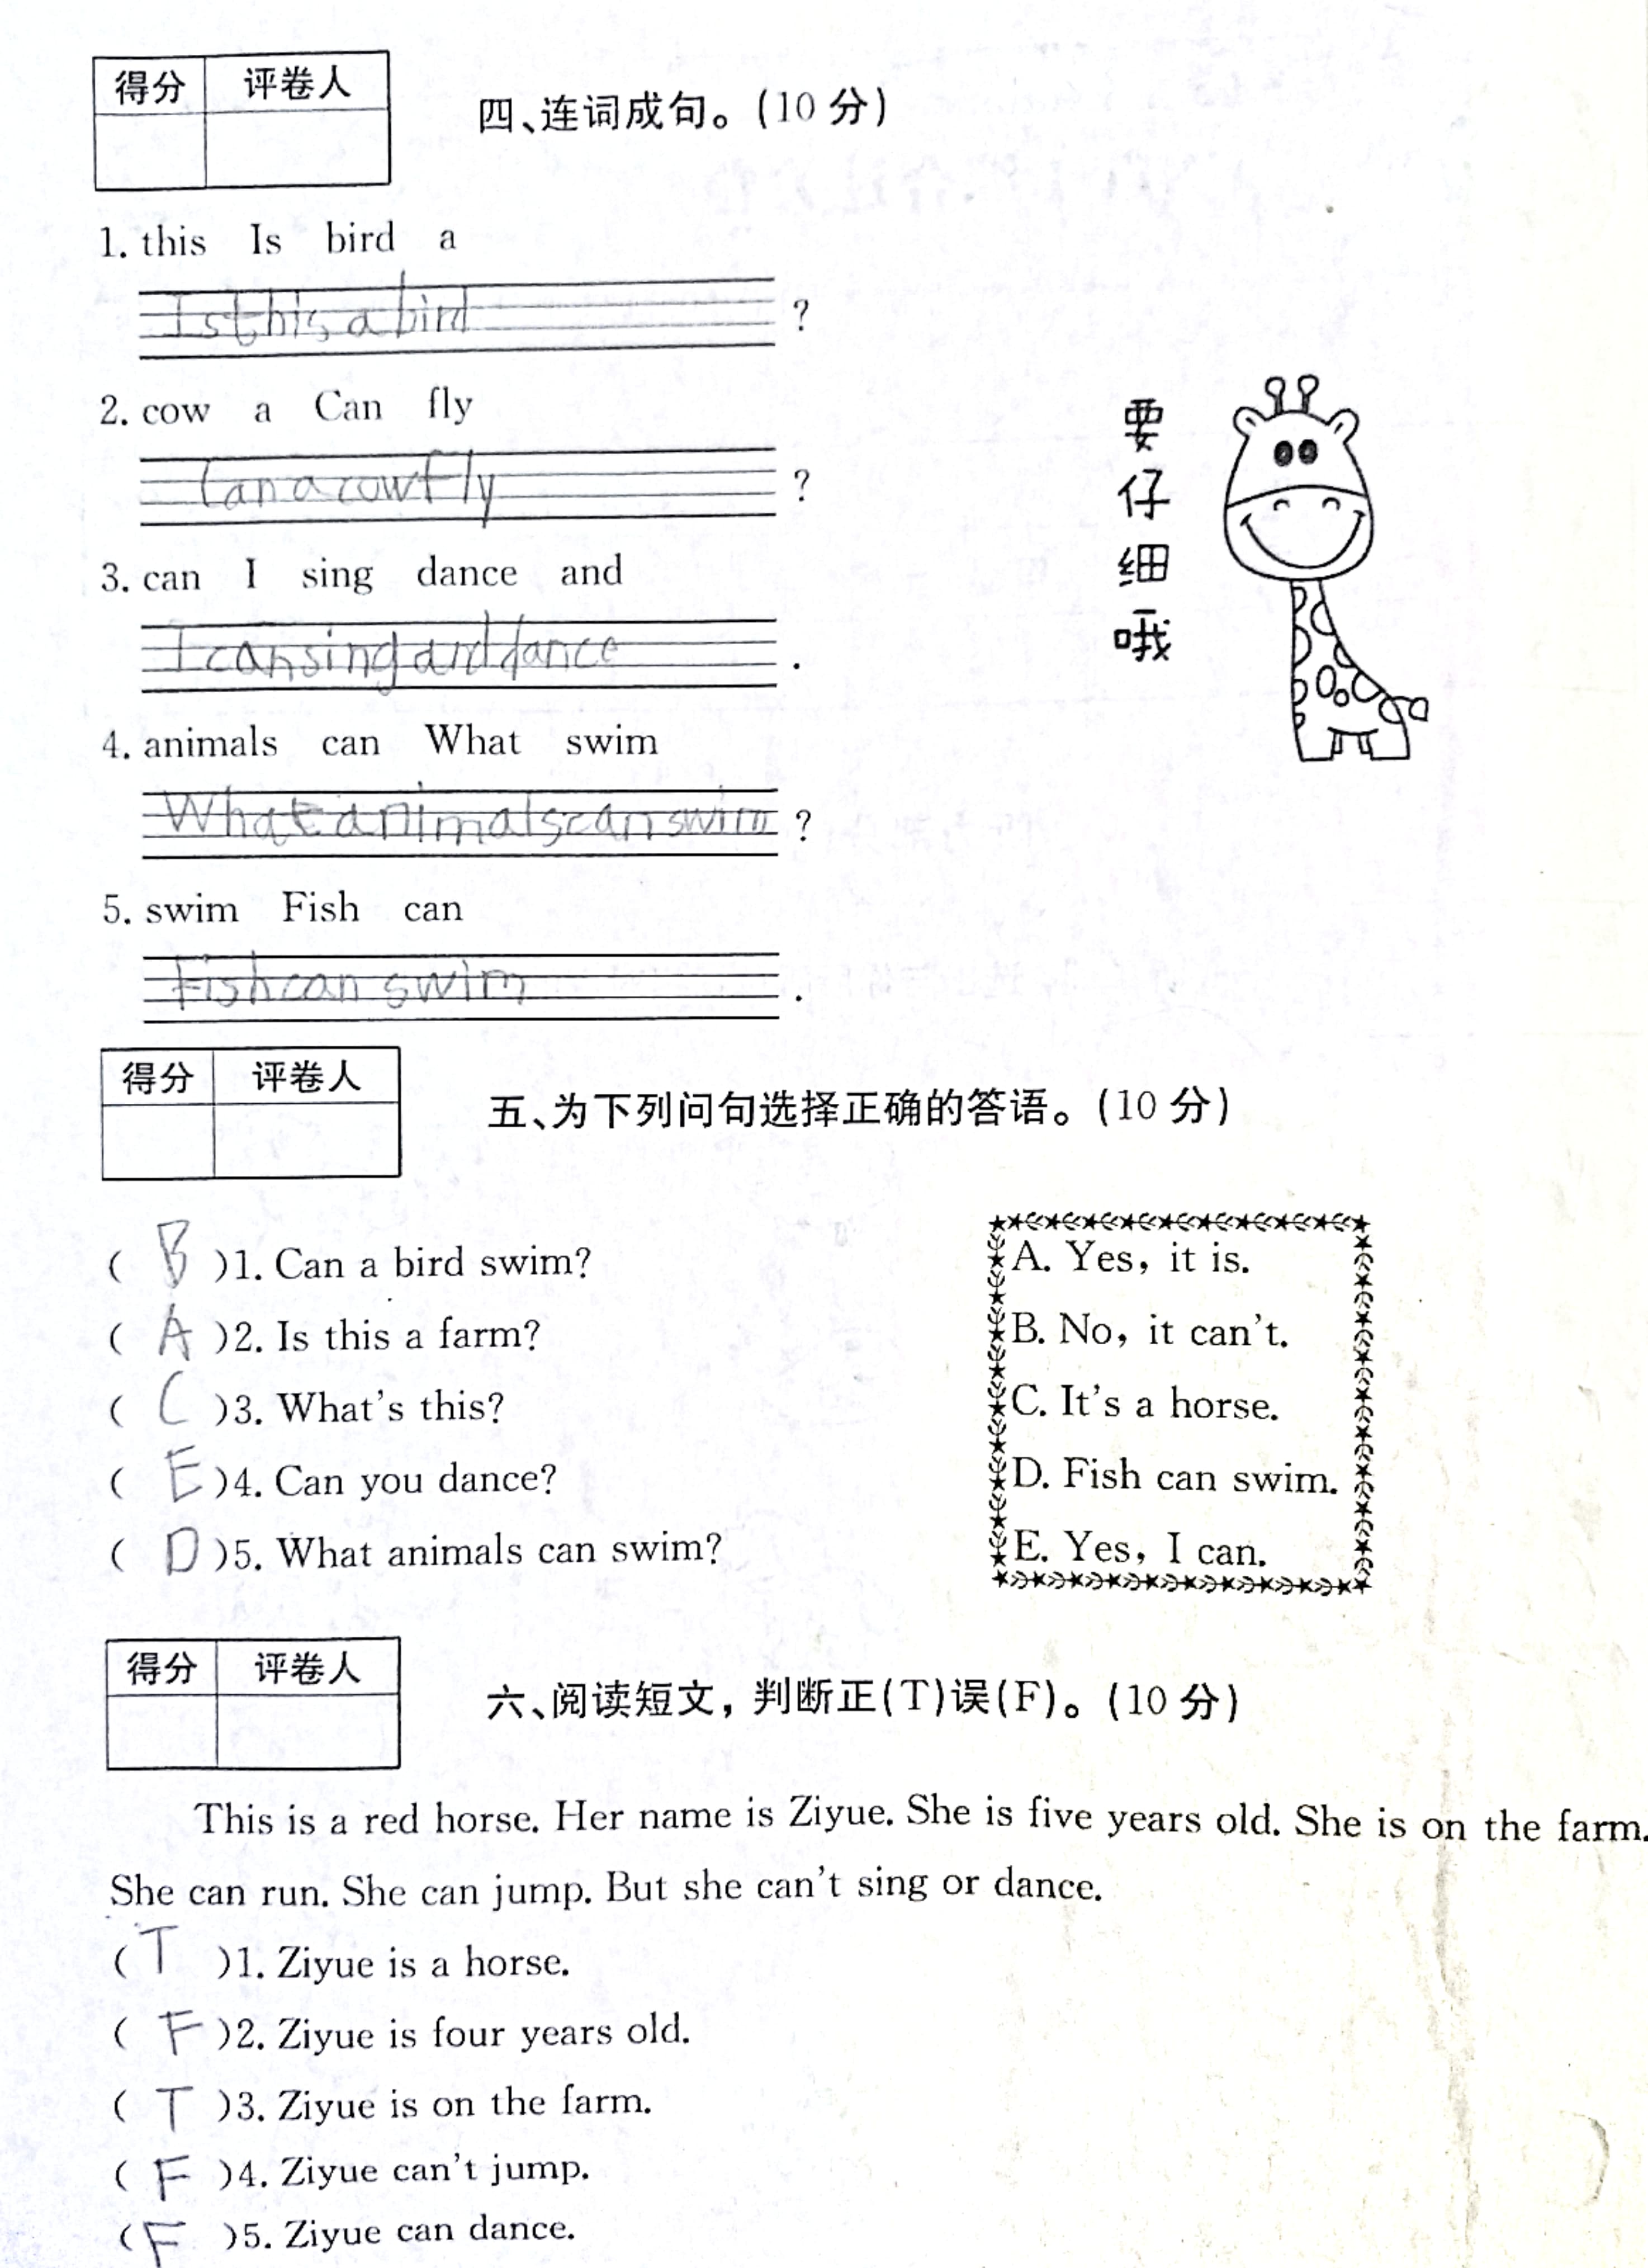 得分 评卷人
四、连词成句。(10 分)
1. this Is bird a
Is this a bird ?
2. cow a Can fly
Can a cow fly ?
3. can I sing dance and
I can sing and dance .
4. animals can What swim
What animals can swim ?
5. swim Fish can
Fish can swim .
要
仔
细
哦
得分 评卷人
五、为下列问句选择正确的答语。(10 分)
( B )1. Can a bird swim?
( A )2. Is this a farm?
( C )3. What's this?
( E )4. Can you dance?
( D )5. What animals can swim?
A. Yes, it is.
B. No, it can't.
C. It's a horse.
D. Fish can swim.
E. Yes, I can.
得分 评卷人
六、阅读短文，判断正(T)误(F)。(10 分)
This is a red horse. Her name is Ziyue. She is five years old. She is on the farm.
She can run. She can jump. But she can't sing or dance.
( T )1. Ziyue is a horse.
( F )2. Ziyue is four years old.
( T )3. Ziyue is on the farm.
( F )4. Ziyue can't jump.
( F )5. Ziyue can dance.